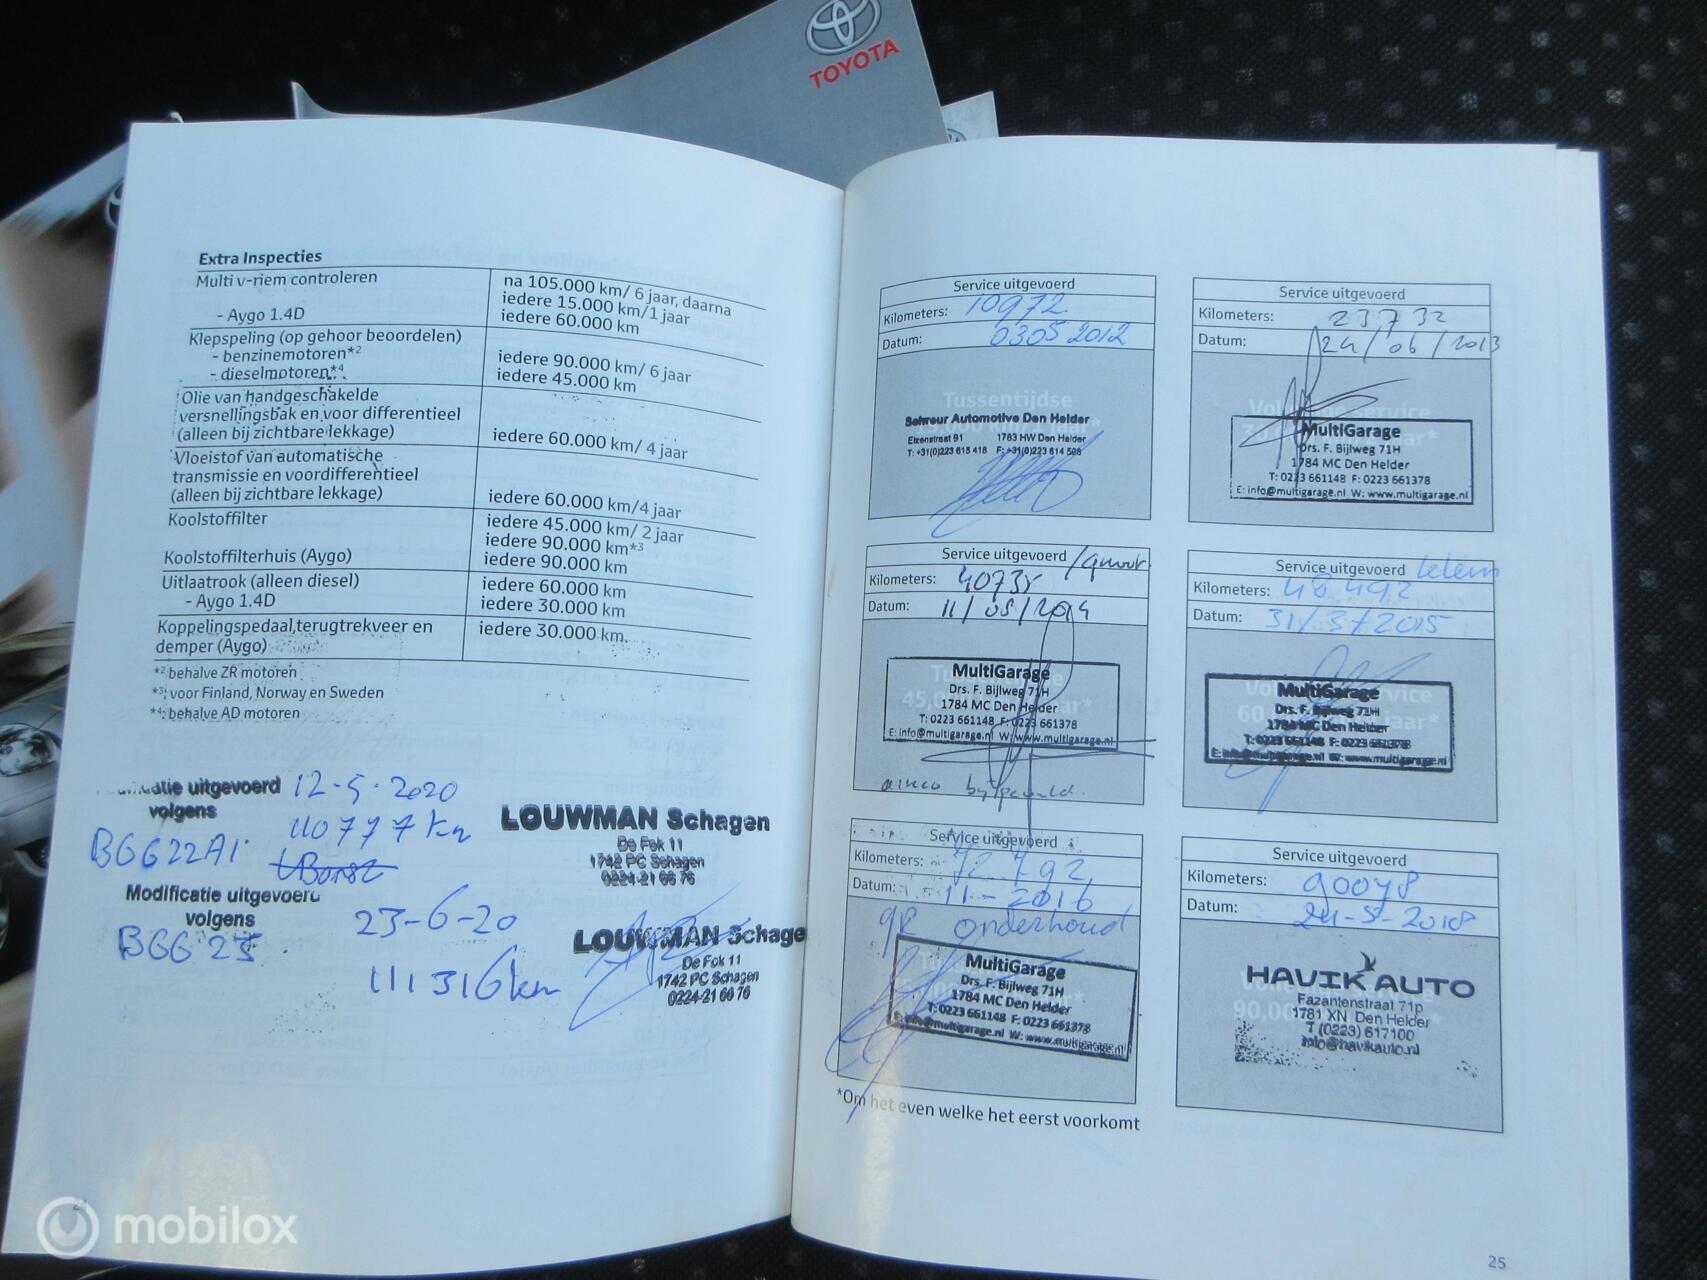 TOYOTA
Extra Inspecties
Multi v-riem controleren
na 105.000 km/ 6 jaar, daarna
iedere 15.000 km/1 jaar
- Aygo 1.4D
iedere 60.000 km
Klepspeling (op gehoor beoordelen)
- benzinemotoren*2
iedere 90.000 km/ 6 jaar
- dieselmotoren*4
iedere 45.000 km
Olie van handgeschakelde
versnellingsbak en voor differentieel
(alleen bij zichtbare lekkage)
iedere 60.000 km/ 4 jaar
Vloeistof van automatische
transmissie en voordifferentieel
(alleen bij zichtbare lekkage)
iedere 60.000 km/4 jaar
Koolstoffilter
iedere 45.000 km/ 2 jaar
iedere 90.000 km*3
Koolstoffilterhuis (Aygo)
iedere 90.000 km
Uitlaatrook (alleen diesel)
iedere 60.000 km
- Aygo 1.4D
iedere 30.000 km
Koppelingspedaal,terugtrekveer en
demper (Aygo)
iedere 30.000 km.
*2 behalve ZR motoren
*3: voor Finland, Norway en Sweden
*4: behalve AD motoren
uitgevoerd 12-5-2020
volgens
110777 km
BGG22A1
LOUWMAN Schagen
De Fok 11
1742 PC Schagen
0224-21 66 76
Modificatie uitgevoerd
volgens
23-6-20
BGG 25
111316 km
LOUWMAN Schage
De Fok 11
1742 PC Schagen
0224-21 66 76
Service uitgevoerd
Kilometers: 10972
Datum: 03 05 2012
Tussentijdse
Schreur Automotive Den Helder
Etzenstraat 91 1783 HW Den Helder
T: +31(0)223 615 418 F: +31(0)223 614 506
Service uitgevoerd
Kilometers: 23,732
Datum: 24/06/2013
MultiGarage
Drs. F. Bijlweg 71H
1784 MC Den Helder
T: 0223 661148 F: 0223 661378
E: info@multigarage.nl W: www.multigarage.nl
Service uitgevoerd
Kilometers: 40735
Datum: 11/05/2014
MultiGarage
Drs. F. Bijlweg 71H
1784 MC Den Helder
T: 0223 661148 F: 0223 661378
E: info@multigarage.nl W: www.multigarage.nl
airco bijgevuld.
Service uitgevoerd klein
Kilometers: 48492
Datum: 31/3/2015
MultiGarage
Drs. F. Bijlweg 71H
1784 MC Den Helder
T: 0223 661148 F: 0223 661378
E: info@multigarage.nl W: www.multigarage.nl
Service uitgevoerd
Kilometers: 72.792
Datum: 11-2016
gr onderhoud
MultiGarage
Drs. F. Bijlweg 71H
1784 MC Den Helder
T: 0223 661148 F: 0223 661378
E: info@multigarage.nl W: www.multigarage.nl
Service uitgevoerd
Kilometers: 90078
Datum: 24-5-2018
HAVIK AUTO
Fazantenstraat 71p
1781 XN Den Helder
T (0223) 617100
info@havikauto.nl
*Om het even welke het eerst voorkomt
25
mobilox